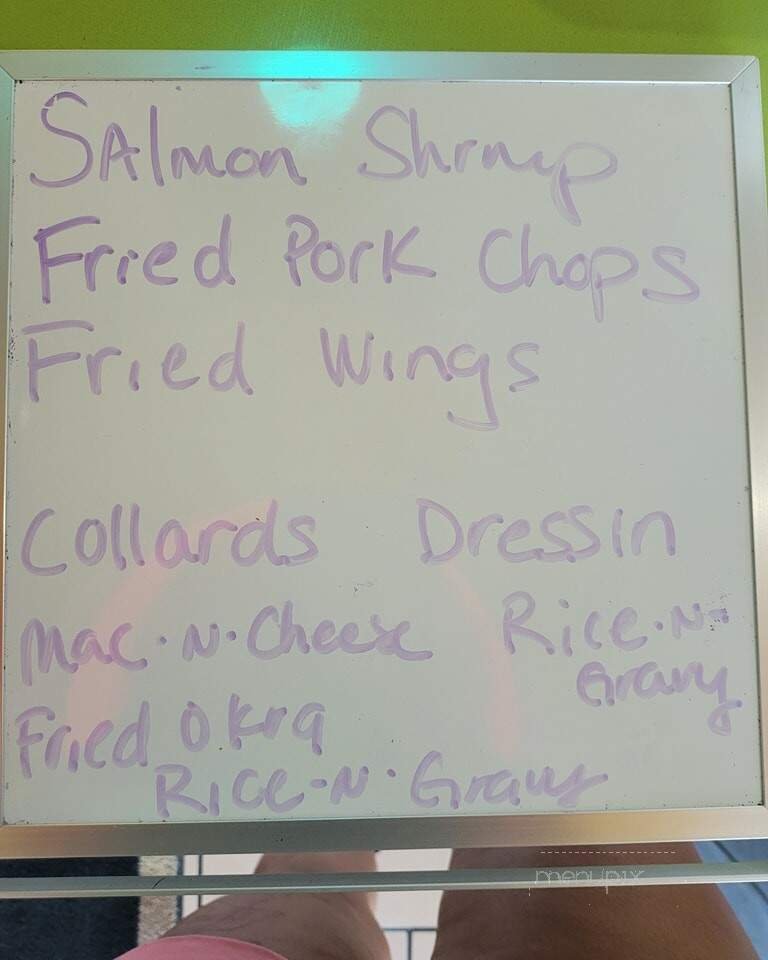 SAlmon Shrmp
Fried Pork Chops
Fried Wings
Collards Dressin
Mac·N·Cheese Rice·N·
Gravy
Fried Okra
Rice-N·Gravy
menupix